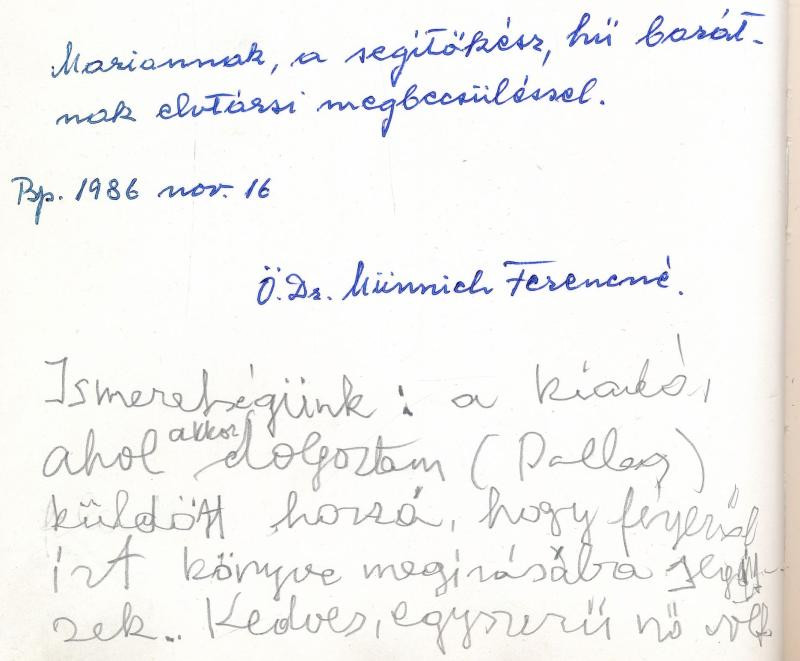 Mariannak, a segítőkész, hű barát-
nak elvtársi megbecsüléssel.
Bp. 1986 nov. 16
Ö. Dr. Münnich Ferencné.
Ismeretségünk: a kiadó,
ahol akkor dolgoztam (Pallas)
küldött hozzá, hogy férjéről
írt könyve megírásába segít-
sek.. Kedves, egyszerű nő volt